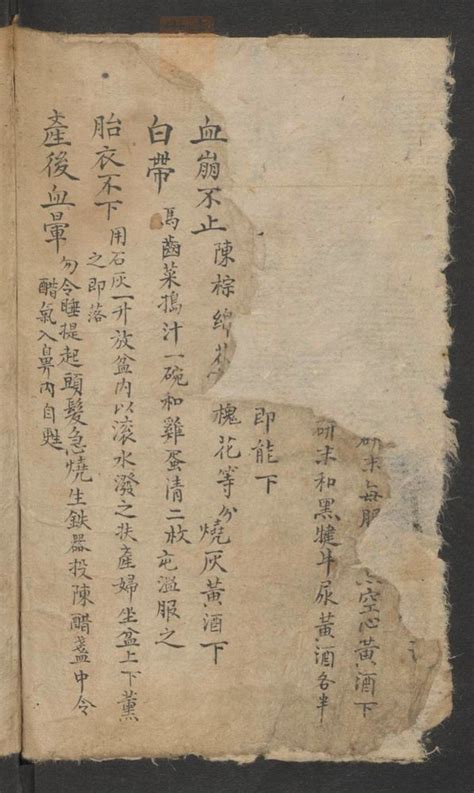 研末每服 空心黃酒下
研末和黑犍牛尿黃酒各半
即能下
血崩不止 陳棕綿花 槐花等分燒灰黃酒下
白帶 馬齒菜搗汁一碗和雞蛋清二枚屯溫服之
胎衣不下 用石灰一升放盆內以滾水潑之扶產婦坐盆上下薰
之即落
產後血暈 勿令睡提起頭髮急燒生鉄器投陳醋盞中令
醋氣入鼻內自甦